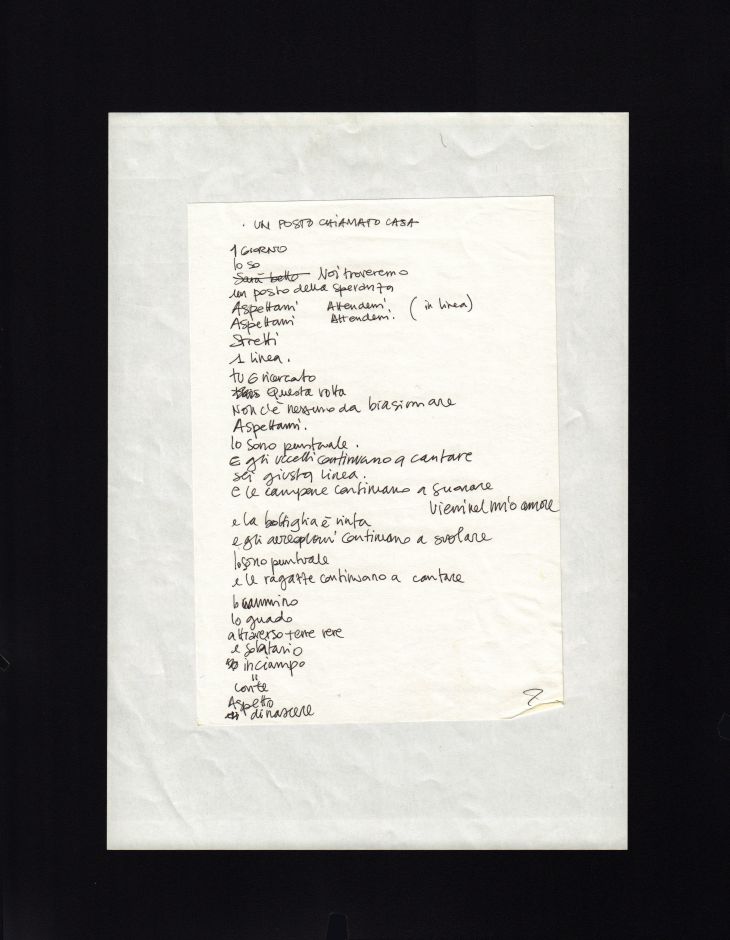 · UN POSTO CHIAMATO CASA
1 GIORNO
Io so
Sarà bello Noi troveremo
un posto della speranza
Aspettami Attendemi (in linea)
Aspettami Attendemi.
Stretti
1 linea.
tu 6 ricercato
Questa volta
Non c'è nessuno da biasimare
Aspettami.
Io sono puntuale.
E gli uccelli continuano a cantare
sei giusta linea.
e le campane continuano a suonare
Vieni nel mio amore
e la bottiglia è vinta
e gli aereoplani continuano a svolare
Io sono puntuale
e le ragazze continuano a cantare
Io cammino
Io guado
attraverso terre vere
e solitario
inciampo
con te
Aspetto
di nascere